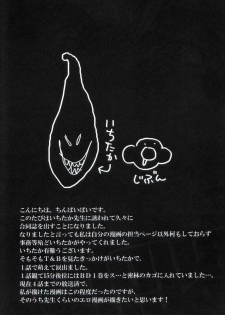 いちたか
じぶん
こんにちは。ちんぱいぱいです。
このたびはいちたか先生に誘われて久々に
合同誌を出すことになりました。
なりましたと言っても私は自分の漫画の担当ページ以外何もしておらず
事務等殆どいちたかがやってくれました。
いちたか有難うございます。
そもそもT&Bを見たきっかけがいちたかで、
1話で萌えて涙出ました。
1話観て15分後位にはBD1巻をス…と密林のカゴに入れておりました。
現在4話までの放送済で、
私が描けた漫画はこの程度だったのですが、
そのうち先生くらいのエロ漫画が描きたいと思います！